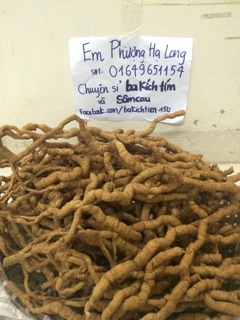 Em Phượng Hạ Long
SĐT. 01649651154
Chuyên sỉ ba kích tím
và Sâm cau
Facebook.com/bakichtim150